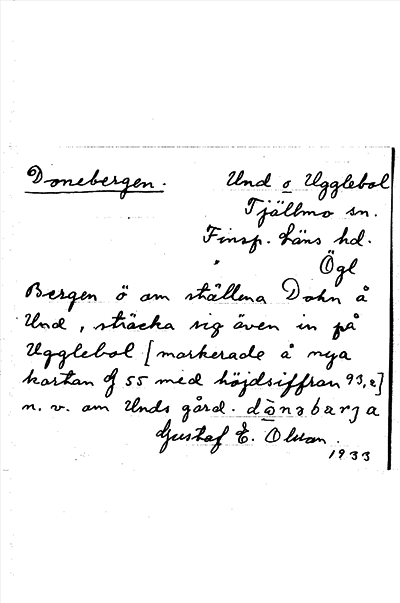 Donebergen. Und o Ugglebol
Tjällmo sn.
Finsp. läns hd.
Ögl
Bergen ö om ställena Dohn å
Und, sträcka sig även in på
Ugglebol [markerade å nya
kartan af 55 med höjdsiffran 93,2]
n. v. om Unds gård. dònəbærja
Gustaf E. Olsson.
1933